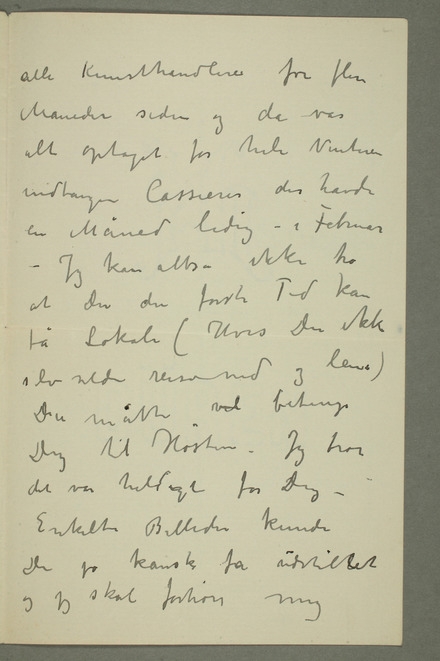 alle Kunsthandlere for flere
Maaneder siden og da var
alt optaget for hele Vinteren
undtagen Cassierer der havde
en Måned ledig – i Februar
– Jeg kan altså ikke tro
at Du den første Tid kan
få Lokale (Hvis Du ikke
selv vilde reise ned og leie)
Du måtte vel betinge
Dig til Høsten. Jeg tror
det var heldigt for Dig –
Enkelte Billeder kunde
Du jo kanske få udstillet
og jeg skal forhøre mig